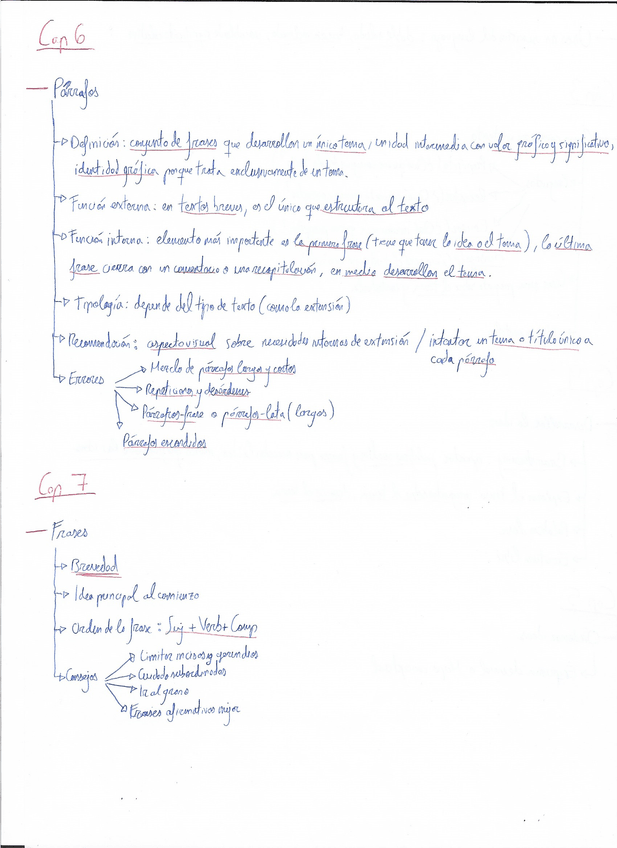 Cap 6
Párrafos
Definición: conjunto de frases que desarrollan un único tema, unidad intermedia con valor gráfico y significativo,
identidad gráfica porque trata exclusivamente de un tema.
Función externa: en textos breves, es el único que estructura al texto
Función interna: elemento más importante es la primera frase (tiene que tener la idea o el tema), la última
frase cierra con un comentario o una recapitulación, en medio desarrollan el tema.
Tipología: depende del tipo de texto (como la extensión)
Recomendación: aspecto visual sobre necesidades internas de extensión / intentar un tema o título único a
cada párrafo
Errores
Mezcla de párrafos largos y cortos
Repeticiones y desórdenes
Párrafos-frase o párrafos-lata (largos)
Párrafos escondidos
Cap 7
Frases
Brevedad
Idea principal al comienzo
Orden de la frase = Suj + Verb + Comp
Consejos
Limitar incisos y gerundios
Cuidado subordinadas
Ir al grano
Frases afirmativas mejor